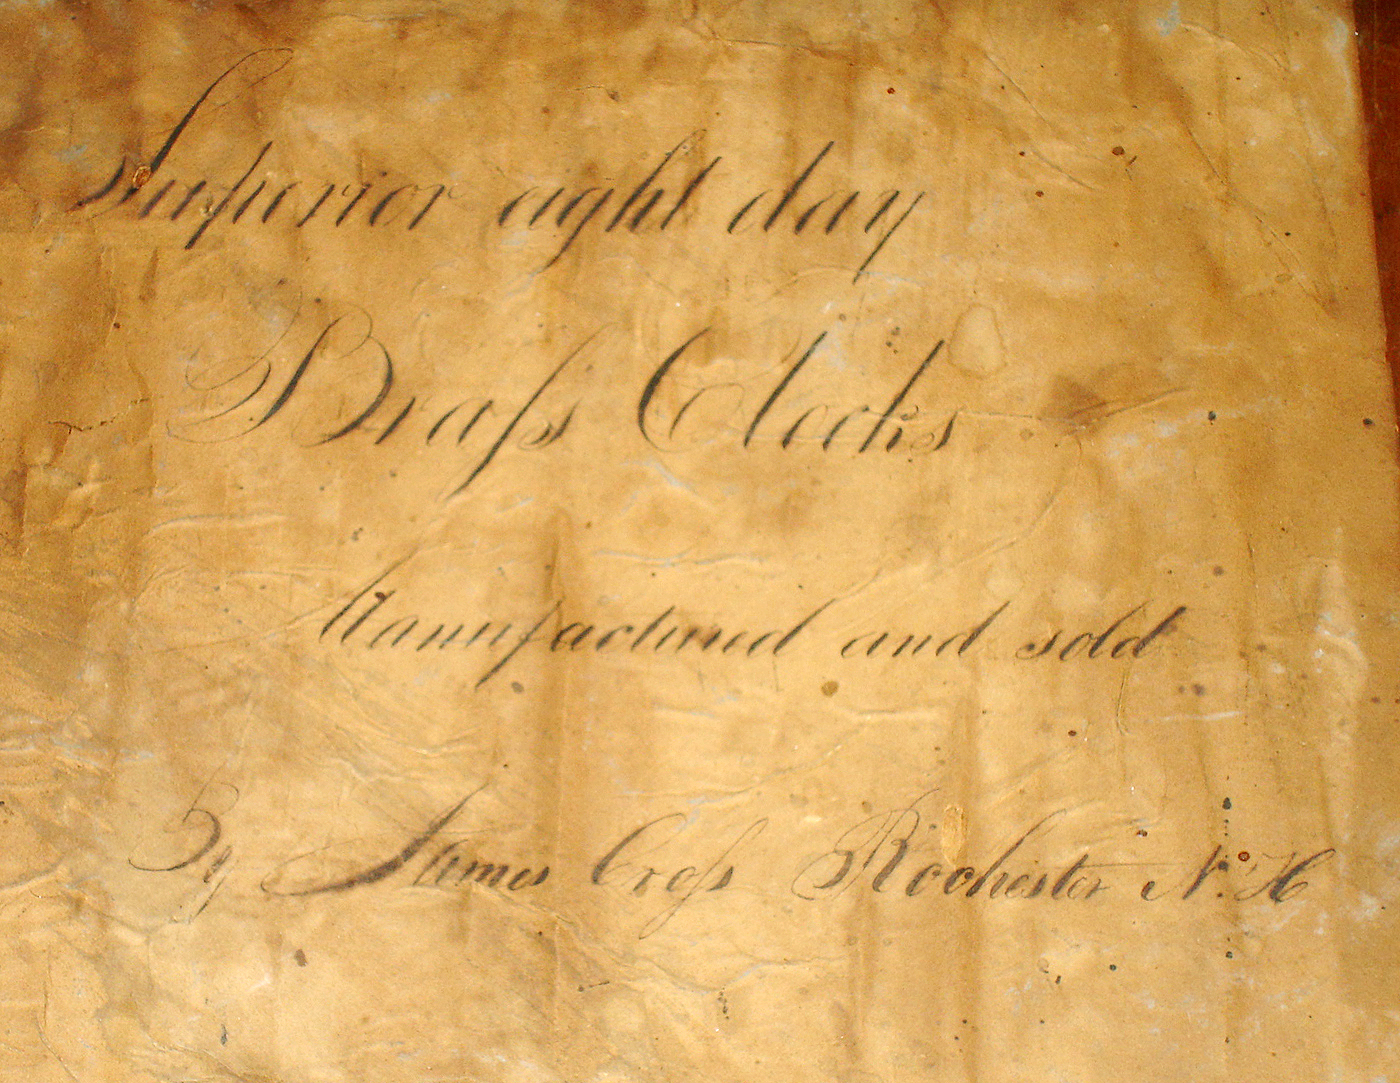 Superior eight day
Braſs Clocks
Manufactured and sold
By James Croſs Rochester N. H